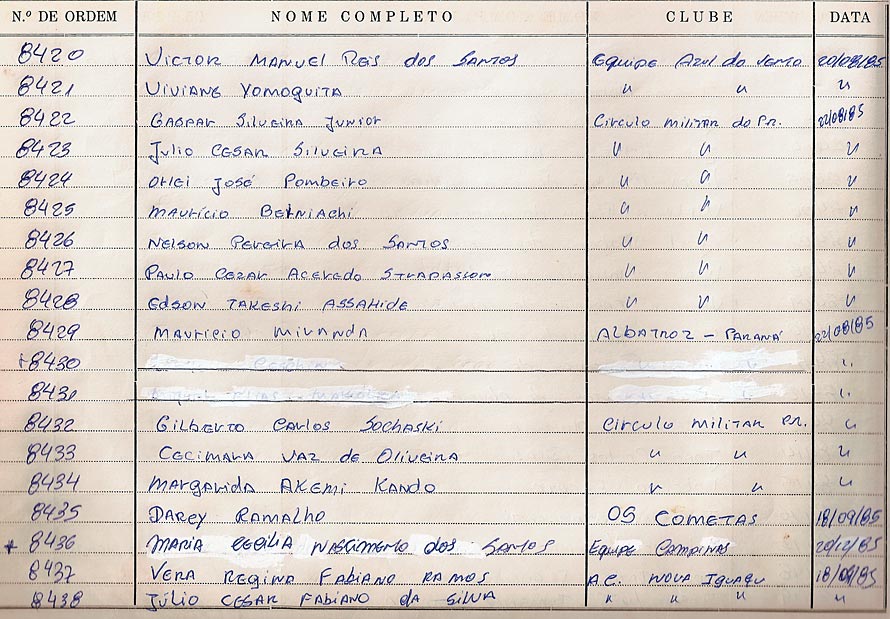 N.º DE ORDEM NOME COMPLETO CLUBE DATA
8420 Victor Manuel Reis dos Santos Equipe Azul do Vento 20/08/85
8421 Viviane Yomoguita " " "
8422 Gaspar Silveira Junior Circulo Militar do Pr. 22/08/85
8423 Julio Cesar Silveira " " "
8424 Orlei José Pombeiro " " "
8425 Mauricio Belniachi " " "
8426 Nelson Pereira dos Santos " " "
8427 Paulo Cezar Acevedo Strapasson " " "
8428 Edson Takeshi Assahide " " "
8429 Mauricio Miranda Albatroz - Paraná 22/08/85
8430 "
8431 "
8432 Gilberto Carlos Sochaski Circulo Militar Pr. "
8433 Cecimara Vaz de Oliveira " " "
8434 Margarida Akemi Kando " " "
8435 Darey Ramalho OS COMETAS 18/09/85
* 8436 Maria Cecilia Nascimento dos Santos Equipe Campinas 20/12/85
8437 Vera Regina Fabiano Ramos A.C. Nova Iguaçu 18/09/85
8438 Júlio Cesar Fabiano da Silva " " " "